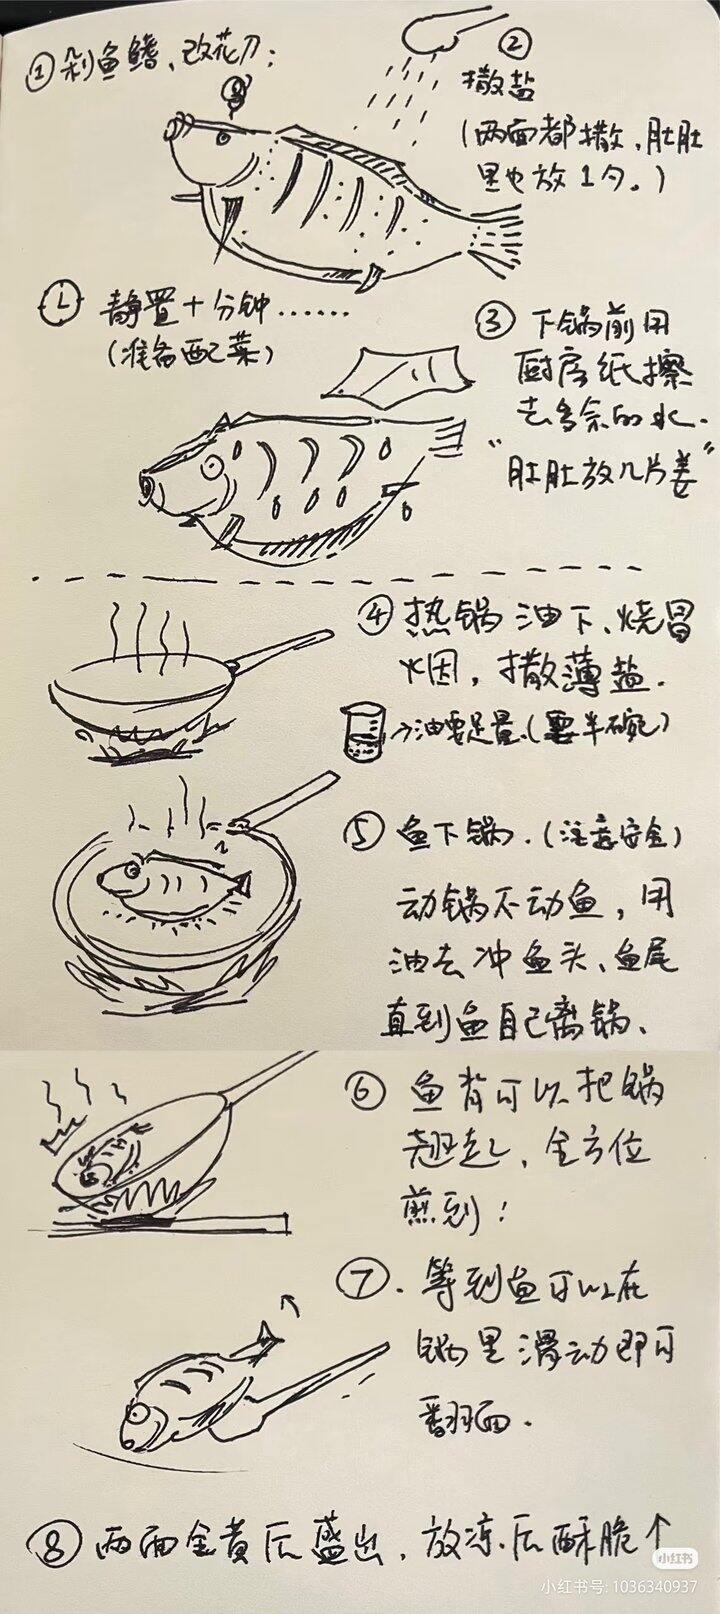 ① 剁鱼鳍、改花刀：
②
撒盐
（两面都撒，肚肚
里也放1勺。）
静置十分钟……
（准备配菜）
③ 下锅前用
厨房纸擦
去多余的水.
“肚肚放几片姜”
④ 热锅油下、烧冒
烟，撒薄盐.
→油要足量.（要半碗）
⑤ 鱼下锅.（注意安全）
动锅不动鱼，用
油去冲鱼头、鱼尾
直到鱼自己离锅、
⑥ 鱼背可以把锅
翘起、全方位
煎到！
⑦. 等到鱼可以在
锅里滑动即可
翻面.
⑧ 两面金黄后盛出，放凉后酥脆↑
小红书
小红书号: 1036340937